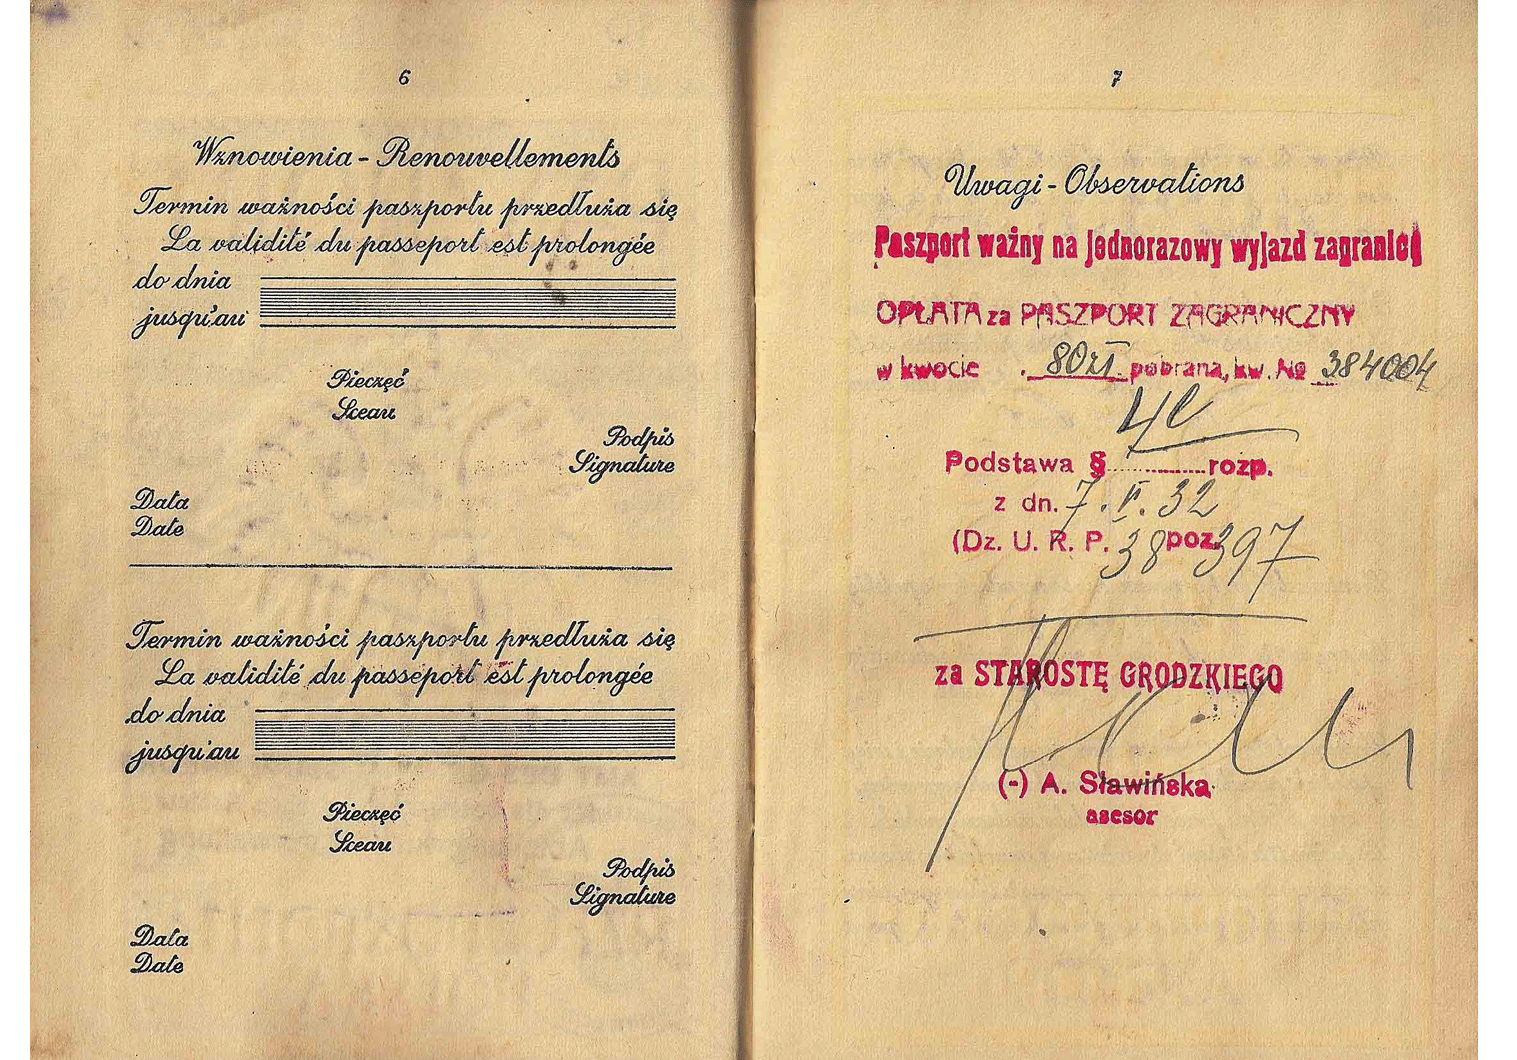 6
Wznowienia - Renouvellements
Termin ważności paszportu przedłuża się
La validité du passeport est prolongée
do dnia
jusqu'au
Pieczęć
Sceau
Podpis
Signature
Data
Date
Termin ważności paszportu przedłuża się
La validité du passeport est prolongée
do dnia
jusqu'au
Pieczęć
Sceau
Podpis
Signature
Data
Date
7
Uwagi - Observations
Paszport ważny na jednorazowy wyjazd zagranicę
OPŁATA za PASZPORT ZAGRANICZNY
w kwocie 80 zł. pobrana, kw. № 384004
Podstawa § 4 rozp.
z dn. 7. V. 32
(Dz. U. R. P. 38 poz. 397
za STAROSTĘ GRODZKIEGO
(-) A. Sławińska
asesor